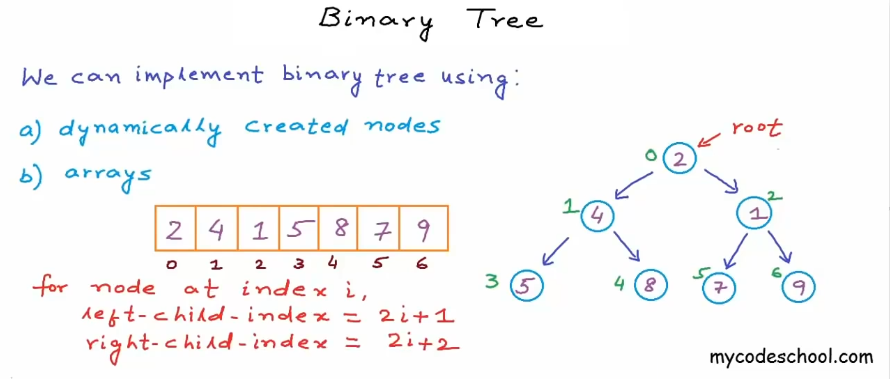 Binary Tree
We can implement binary tree using:
a) dynamically created nodes
b) arrays
2 4 1 5 8 7 9
0 1 2 3 4 5 6
for node at index i,
left-child-index = 2i+1
right-child-index = 2i+2
root
0 2
1 4
1 2
3 5
4 8
5 7
6 9
mycodeschool.com